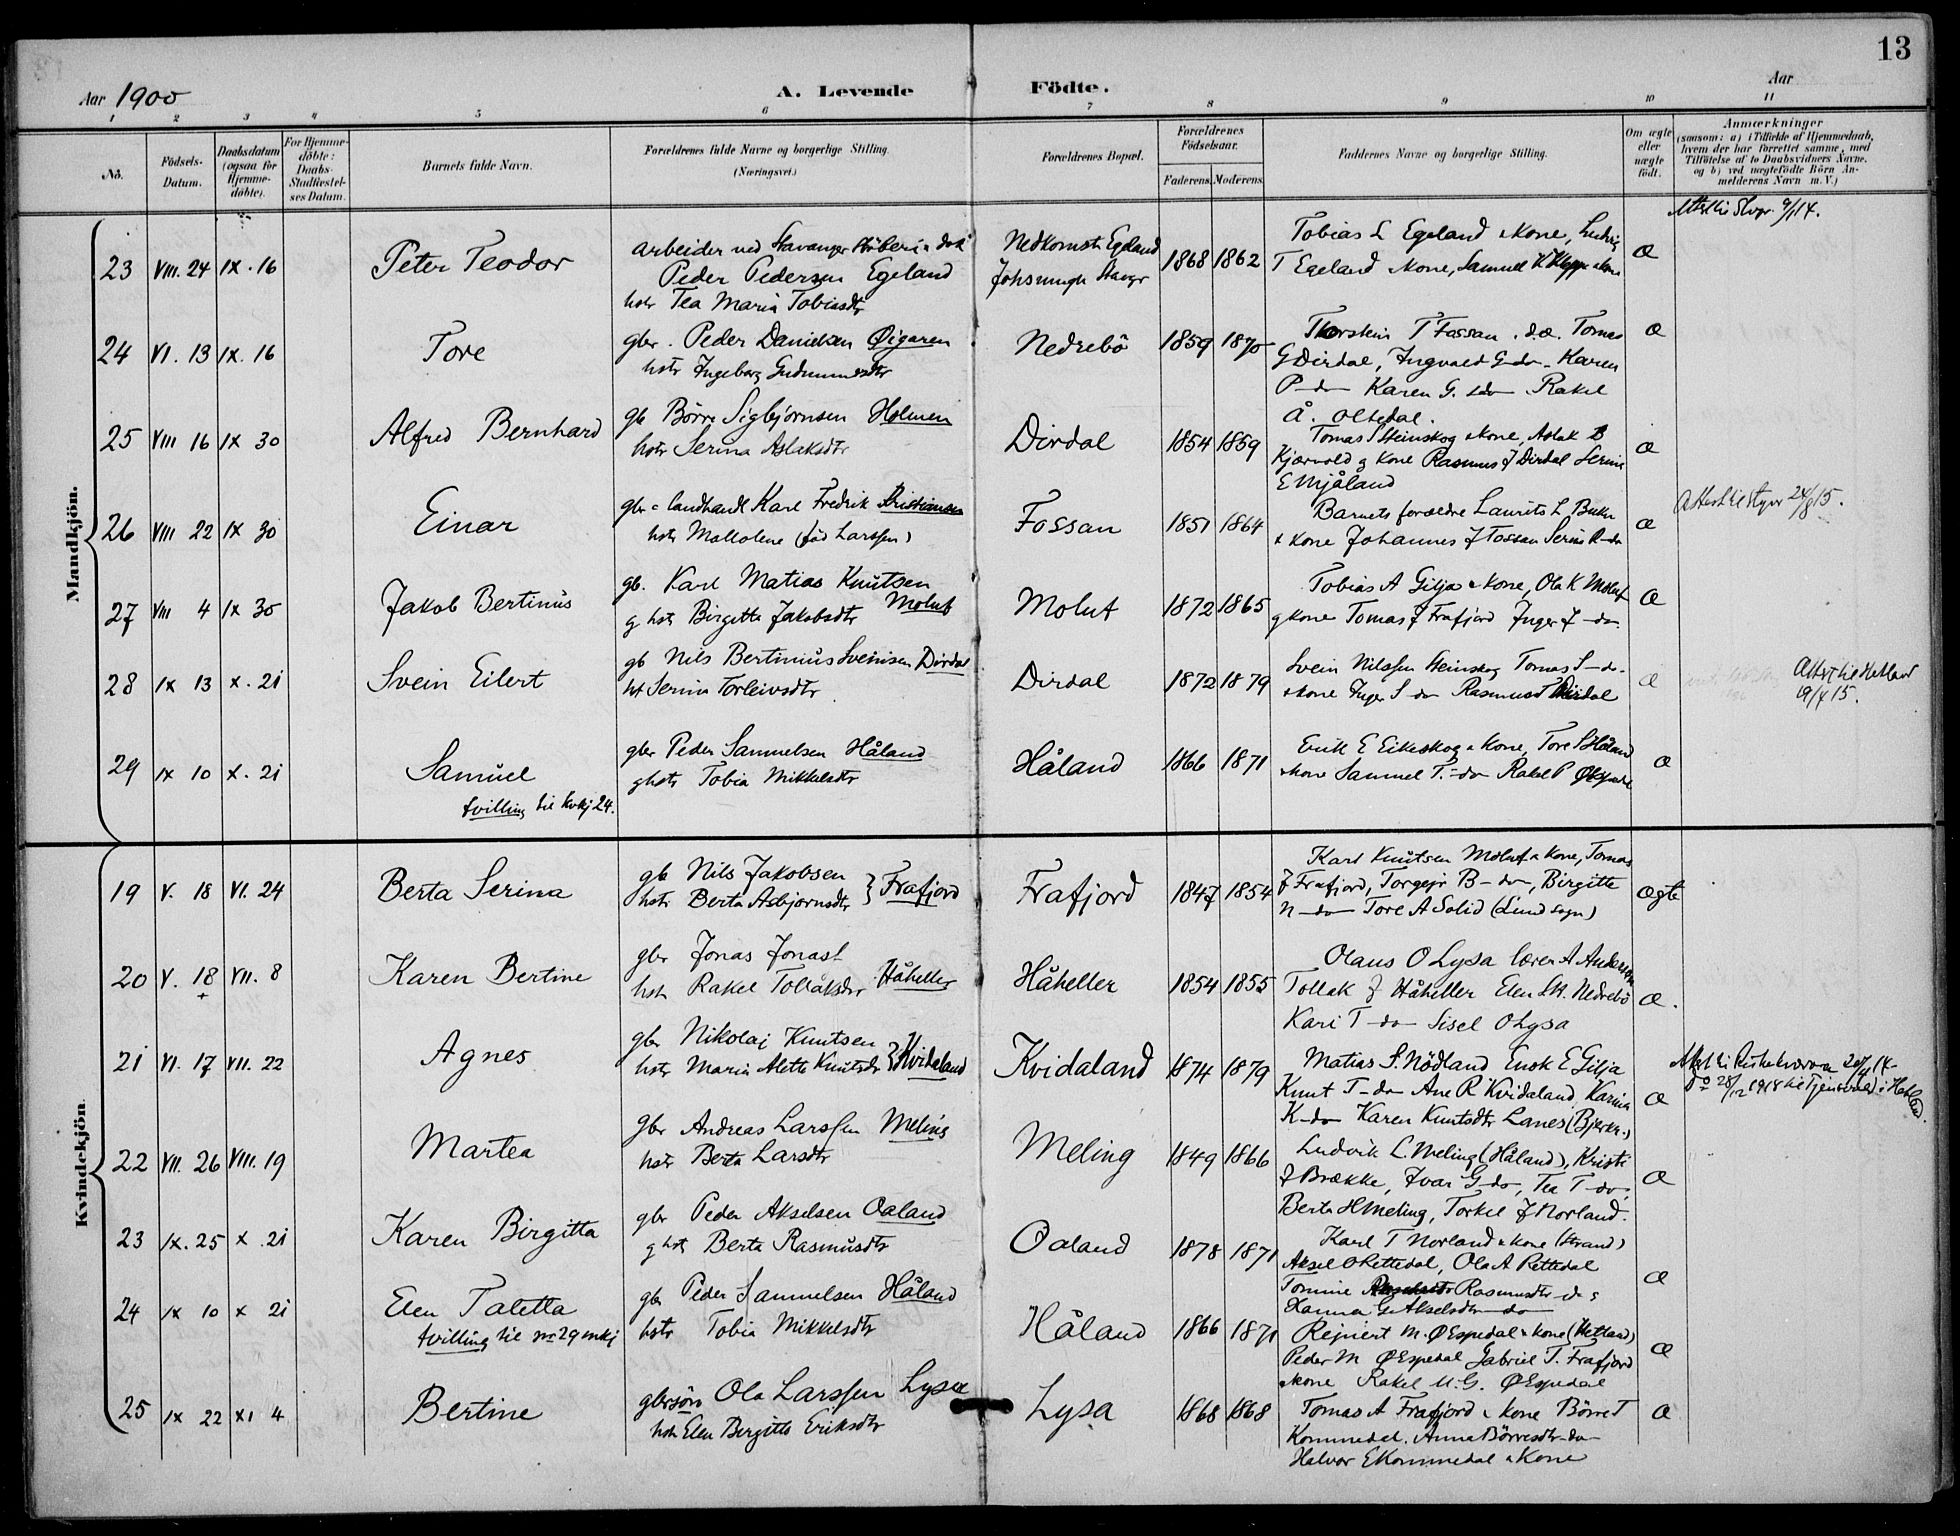 13
Aar 1900
A. Levende Födte.
Aar
1 2 3 4 5 6 7 8 9 10 11
No.
Födsels-Datum.
Daabsdatum (ogsaa for Hjemme-döbte).
For Hjemme-döbte: Daabs-Stadfæstel-ses Datum.
Barnets fulde Navn.
Forældrenes fulde Navne og borgerlige Stilling. (Næringsvei.)
Forældrenes Bopæl.
Forældrenes Födselsaar.
Faderens. Moderens.
Faddernes Navne og borgerlige Stilling.
Om ægte eller uægte födt.
Anmærkninger
(saasom: a) i Tilfælde af Hjemmedaab, hvem der har forrettet samme, med Tilföielse af to Daabsvidners Navne. og b) ved uægtefödte Börn An-melderens Navn m. V.)
Mandkjön.
23 VIII. 24 IX. 16
Peter Teodor
arbeider ved Stavanger
Peder Pedersen Egeland
hstr Tea Maria Tobiasdtr
Nedkomst: Egeland
1868 1862
Tobias L Egeland & kone, Ludvig
T Egeland & kone, Samuel K
Æ
9/1 14.
24 VI. 13 IX. 16
Tore
gbr. Peder Danielsen Øigaren
hstr Ingeborg Gudmundsdtr
Nedrebö
1859 1870
Thorstein T Fossan. d.æ. Tomas
G Dirdal, Ingvald G-do- Karen
P-do Karen G. -do- Rakel
Å. Oltedal.
Æ
25 VIII 16 IX 30
Alfred Bernhard
gb Börre Sigbjörnsen Holmen
hstr Serina Aslaksdtr
Dirdal
1854 1859
Tomas S Steinskog & kone, Aslak B
Kjærvold og kone Rasmus J Dirdal Serine
E Mjåland
Æ
26 VIII 22 IX 30
Einar
gbr & landhandl Karl Fredrik Kristiansen
hstr Mallolene (föd Larssen)
Fossan
1851 1864
Barnets forældre Laurits L
& kone Johannes J Fossan Serine R-do
Æ
Attest til Stgvr 24/8 15.
27 VIII 4 IX 30
Jakob Bertinus
gb. Karl Matias Knutsen
Molut
g hstr Birgitte Jakobsdtr
Molut
1872 1865
Tobias A Gilja & kone, Ola K Molut
g kone Tomas J Frafjord Inger J -do-
Æ
28 IX 13 X. 21
Svein Eilert
gb Nils Bertinius Sveinsen Dirdal
hst Serina Torleivsdtr
Dirdal
1872 1879
Svein Nilssen Steinskog Tomas S-do-
& kone Inger S -do- Rasmus T Dirdal
Æ
Attest til Hetland
19/4 15.
29 IX 10 X. 21
Samuel
tvilling til kvkj 24.
gbr Peder Samuelsen Håland
g hstr Tobia Mikkelsdtr
Håland
1866 1871
Erik E Eikeskog & kone, Tore S Håland
& kone Samuel T.-do- Rakel P
Æ
Kvindekjön.
19 V. 18 VI. 24
Berta Serina
gb Nils Jakobsen
hstr Berta Asbjörnsdtr } Frafjord
Frafjord
1847 1854
Karl Knutsen Molut & kone, Tomas
J Frafjord, Torgeir B-do-, Birgitte
N-do- Tore A Solid (Lund sogn)
Ægte
20 V. 18 VII. 8
Karen Bertine
gbr Jonas Jonass
hstr Rakel Tollaksdtr Håheller
Håheller
1854 1855
Olaus O Lysa lærer A Andersen
Tollak J Håheller Elen SK. Nedrebö
Kari T-do- Sisel O Lysa
Æ.
21 VI. 17 VII. 22
Agnes
gbr Nikolai Knutsen
hstr Maria Alette Knutsdtr } Kvidaland
Kvidaland
1874 1879
Matias S. Nödland Enok E Gilja
Knut T-do- Ane R Kvidaland, Karina
K-do- Karen Knutsdtr Lanes (Bjerkr.)
Æ
22 VII. 26 VIII. 19
Martea
gbr Andreas Larssen Meling
hstr Berta Larsdtr
Meling
1849 1866
Ludvik L. Meling (Håland), Kristi
J Brække, Ivar G-do, Tea T-do,
Berta H Meling, Torkel J Norland.
Æ
23 IX. 25 X. 21
Karen Birgitta
gbr Peder Akselsen Oaland
g hstr Berta Rasmusdtr
Oaland
1878 1871
Karl T Norland & kone (Strand)
Aksel O Rettedal, Ola A Rettedal
Tomine Rasmusdtr -do-
Hanna G Akselsdtr -do-
Æ
24 IX 10 X 21
Elen Taletta
tvilling til nr 29 mkj
gbr Peder Samuelsen Håland
hstr Tobia Mikkelsdtr
Håland
1866 1871
Reinert M. Ø Espedal & kone (Hetland)
Peder M Ø Espedal Gabriel T. Frafjord
& kone Rakel M.G. Ø Espedal
Æ
25 IX 22 XI 4
Bertine
gbrsön Ola Larssen Lysa
hstr Elen Birgitte Eriksdtr
Lysa
1868 1868
Tomas A Frafjord & kone Börre T
Kommedal. Anna Börresdtr -do-
Halvor E Kommedal & kone
Æ